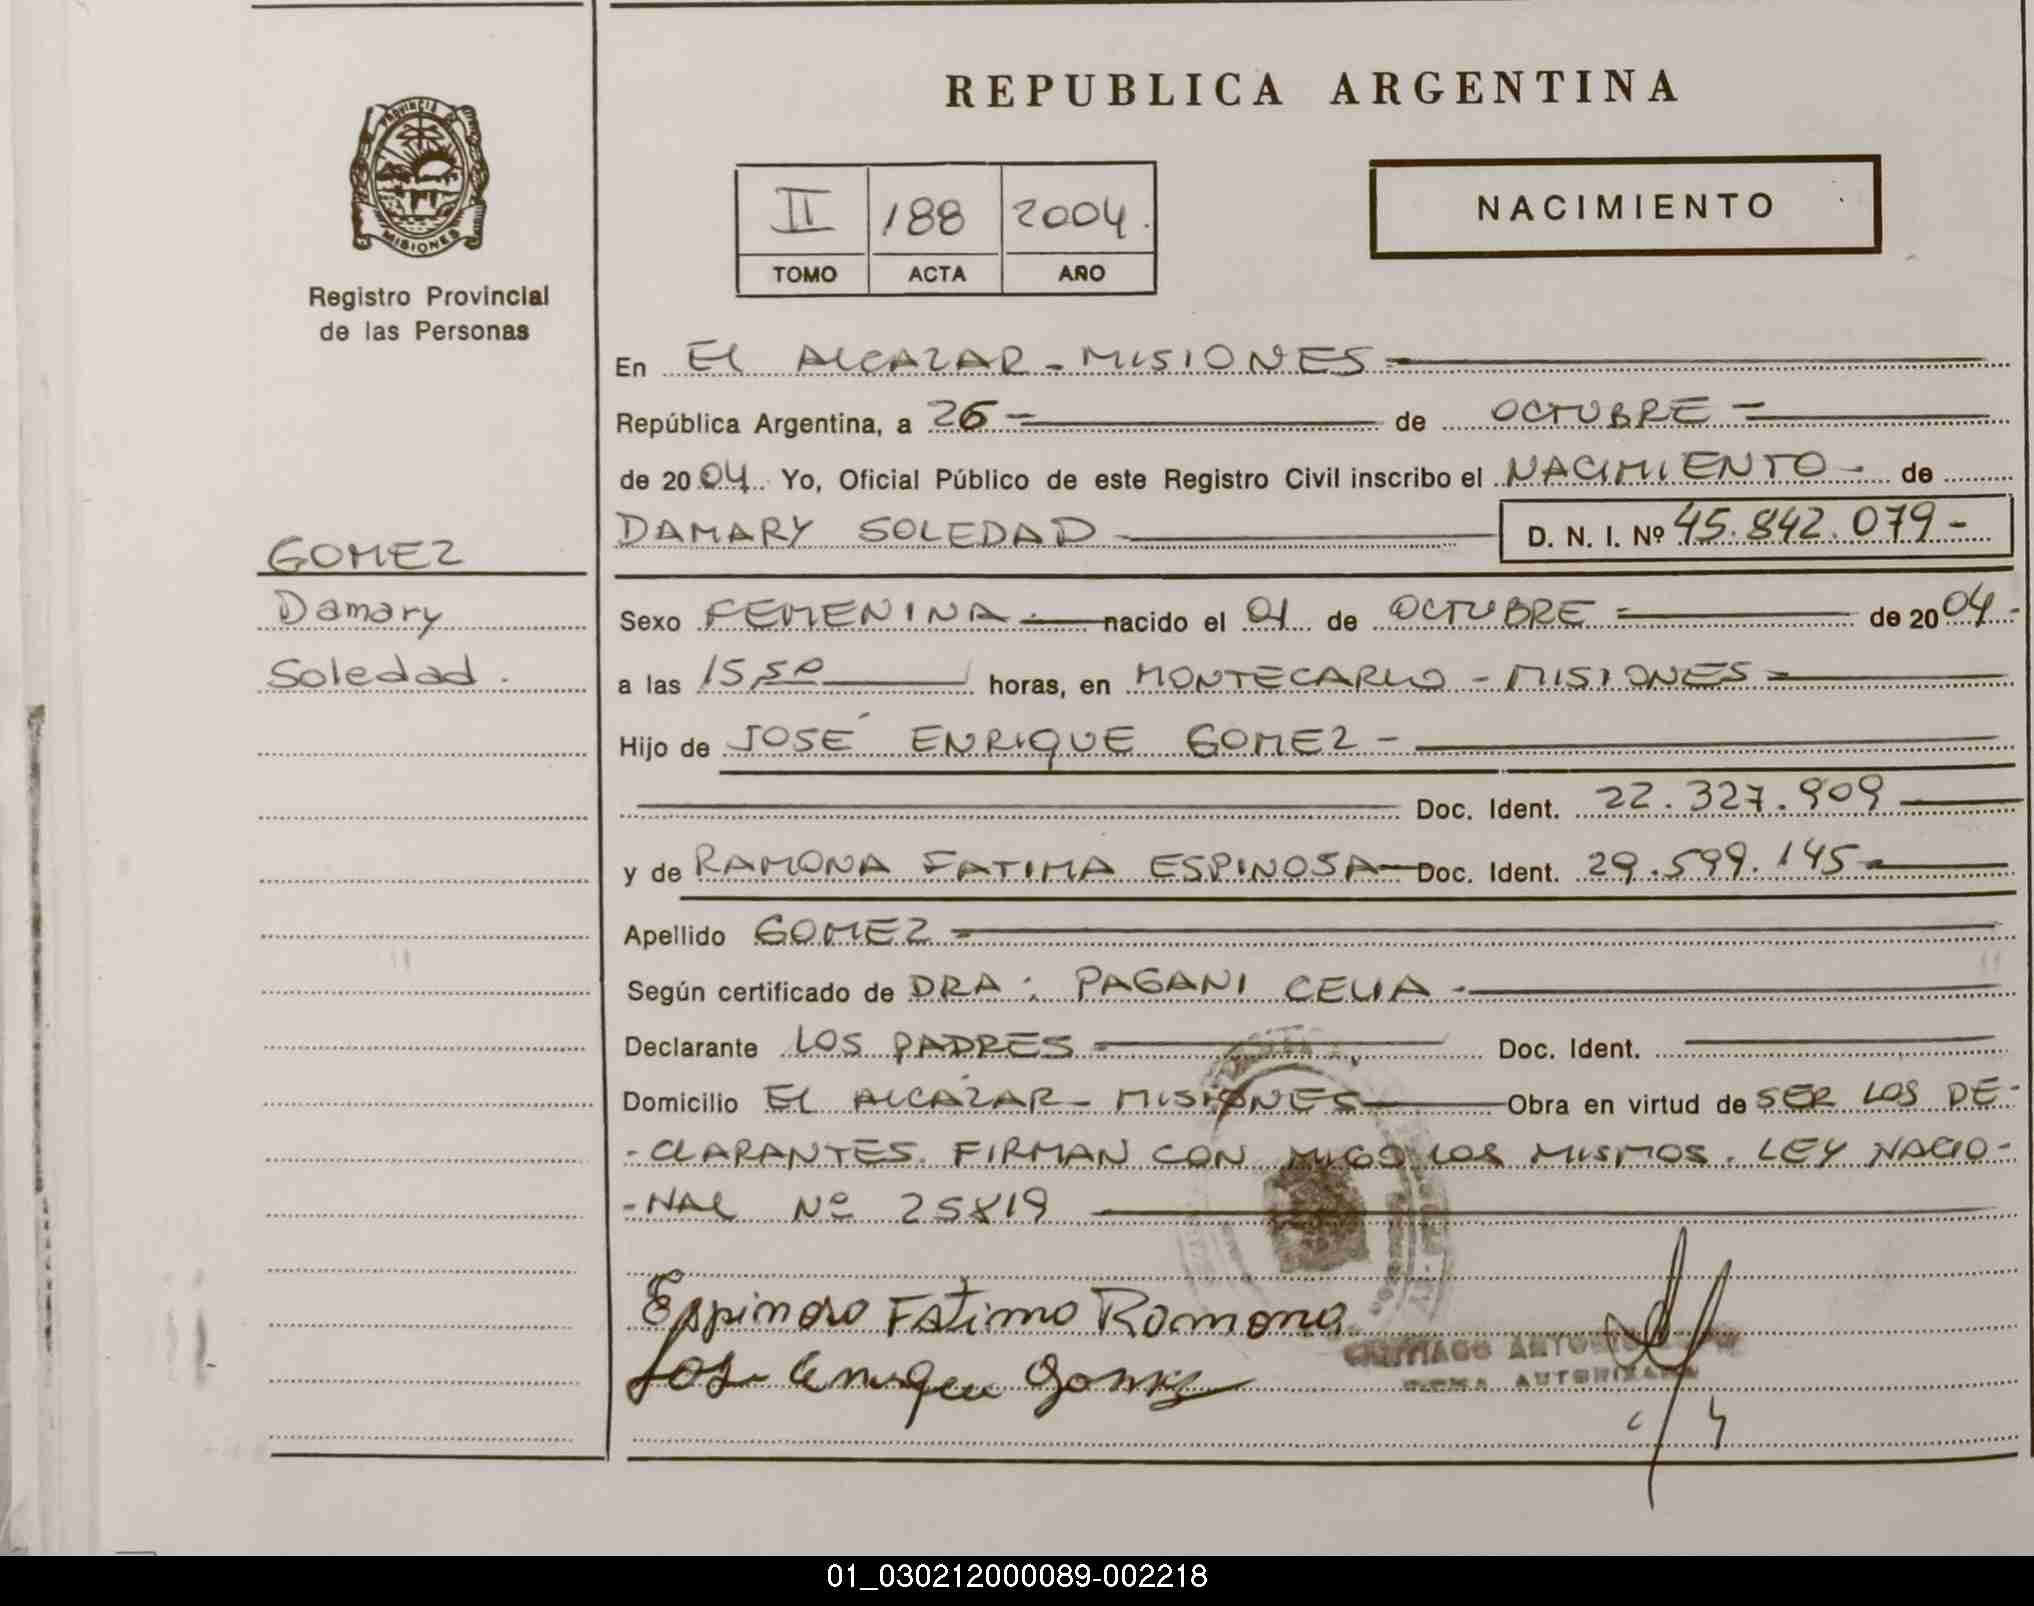 REPUBLICA ARGENTINA
PROVINCIA DE
MISIONES
Registro Provincial
de las Personas
II 188 2004.
TOMO ACTA AÑO
NACIMIENTO
En EL ALCAZAR - MISIONES
República Argentina, a 26 - de OCTUBRE -
de 2004. Yo, Oficial Público de este Registro Civil inscribo el NACIMIENTO - de
DAMARY SOLEDAD D. N. I. Nº 45.842.079-
GOMEZ
Damary
Soledad.
Sexo FEMENINA nacido el 01 de OCTUBRE de 2004.-
a las 15,50 horas, en MONTECARLO - MISIONES
Hijo de JOSÉ ENRIQUE GOMEZ -
Doc. Ident. 22.327.909
y de RAMONA FATIMA ESPINOSA Doc. Ident. 29.599.145
Apellido GOMEZ
Según certificado de DRA: PAGANI CELIA
Declarante LOS PADRES Doc. Ident.
Domicilio EL ALCÁZAR - MISIONES Obra en virtud de SER LOS DE-
-CLARANTES. FIRMAN CON MIGO LOS MISMOS. LEY NACIO-
-NAL Nº 25819
Espinosa Fatima Ramona
Jose Enrique Gomez
SANTIAGO ANTONIO
FIRMA AUTORIZADA
01_030212000089-002218